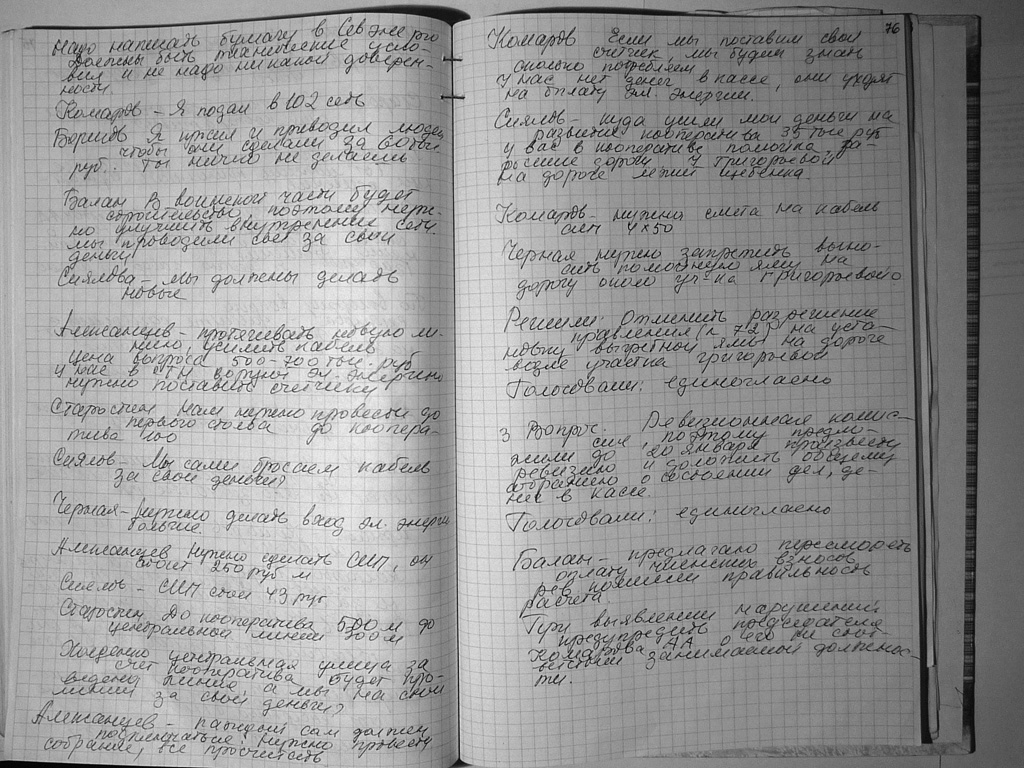 Надо написать бумагу в Севэнерго
Должны быть технические усло-
вия и не надо никакой доверен-
ности.
Комаров - Я подал в 102 сеть
Я просил и приводил людей
чтобы они сделали за
руб.. Ты ничего не делаешь
Балан В воинской части будет
строительство, поэтому нуж-
но улучшить внутренние сети
мы проводили свет за свои
деньги
Сиялова - мы должны делать
новые
Алексанцев - протягивать новую ли-
нию, усилить кабель
цена вопроса 500-700 тыс. руб.
у нас в СТН воруют эл. энергию
нужно поставить счетчики
Старостин Нам нужно провести до
первого столба до коопера-
тива 400
Сиялов - Мы сами бросаем кабель
за свои деньги?
Черная - Нужно делать вход эл. энергии
больше.
Алексанцев Нужно сделать СИП, он
стоит 250 руб м
Сиялов - СИП стоит 43 руб
Старостин До кооператива 500 м до
центральной линии 300 м
центральная улица за
счет кооператива будет про-
ведена линия, а мы на свои
линии за свои деньги?
Алексанцев - каждый сам должен
подключаться. Нужно провести
собрание, все просчитать
76
Комаров Если мы поставим свои
счетчик, мы будем знать
сколько потребляем
У нас нет денег в кассе, они уходят
на оплату эл. энергии.
Сиялов - куда ушли мои деньги на
развитие кооператива 35 тыс руб
у вас в кооперативе помойка, за-
росшие дороги У Григорьевой
на дороге лежит щебенка.
Комаров - нужна смета на кабель
сип 4х50
Черная нужно запретить выно-
сить помойную яму на
дорогу около уч-ка Григорьевой
Решили: Отменить разрешение
правления (л 72) на уста-
новку выгребной ямы на дороге
возле участка Григорьевой
Голосовали: единогласно
3 Вопрос. Ревизионная комис-
сия, поэтому предло-
жили до 20 января произвести
ревизию и доложить общему
собранию о состоянии дел, де-
нег в кассе.
Голосовали: единогласно
Балан - предлагаю пересмотреть
оплату членских взносов
рев комиссии правильность
расчета
При выявлении нарушений
предупредить председателя
Комарова о его не соот-
ветствии занимаемой должнос-
ти.